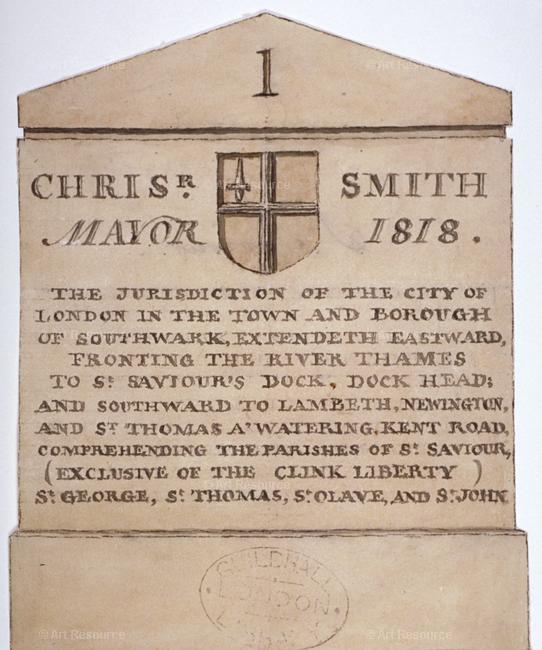 1
CHRISR. SMITH
MAYOR 1818.
THE JURISDICTION OF THE CITY OF
LONDON IN THE TOWN AND BOROUGH
OF SOUTHWARK, EXTENDETH EASTWARD,
FRONTING THE RIVER THAMES
TO ST. SAVIOUR'S DOCK, DOCK HEAD;
AND SOUTHWARD TO LAMBETH, NEWINGTON,
AND ST. THOMAS A'WATERING, KENT ROAD,
COMPREHENDING THE PARISHES OF ST. SAVIOUR,
(EXCLUSIVE OF THE CLINK LIBERTY)
ST. GEORGE, ST. THOMAS, ST. OLAVE, AND ST. JOHN
GUILDHALL
LONDON
© Art Resource
© Art Resource
© Art Resource
© Art Resource